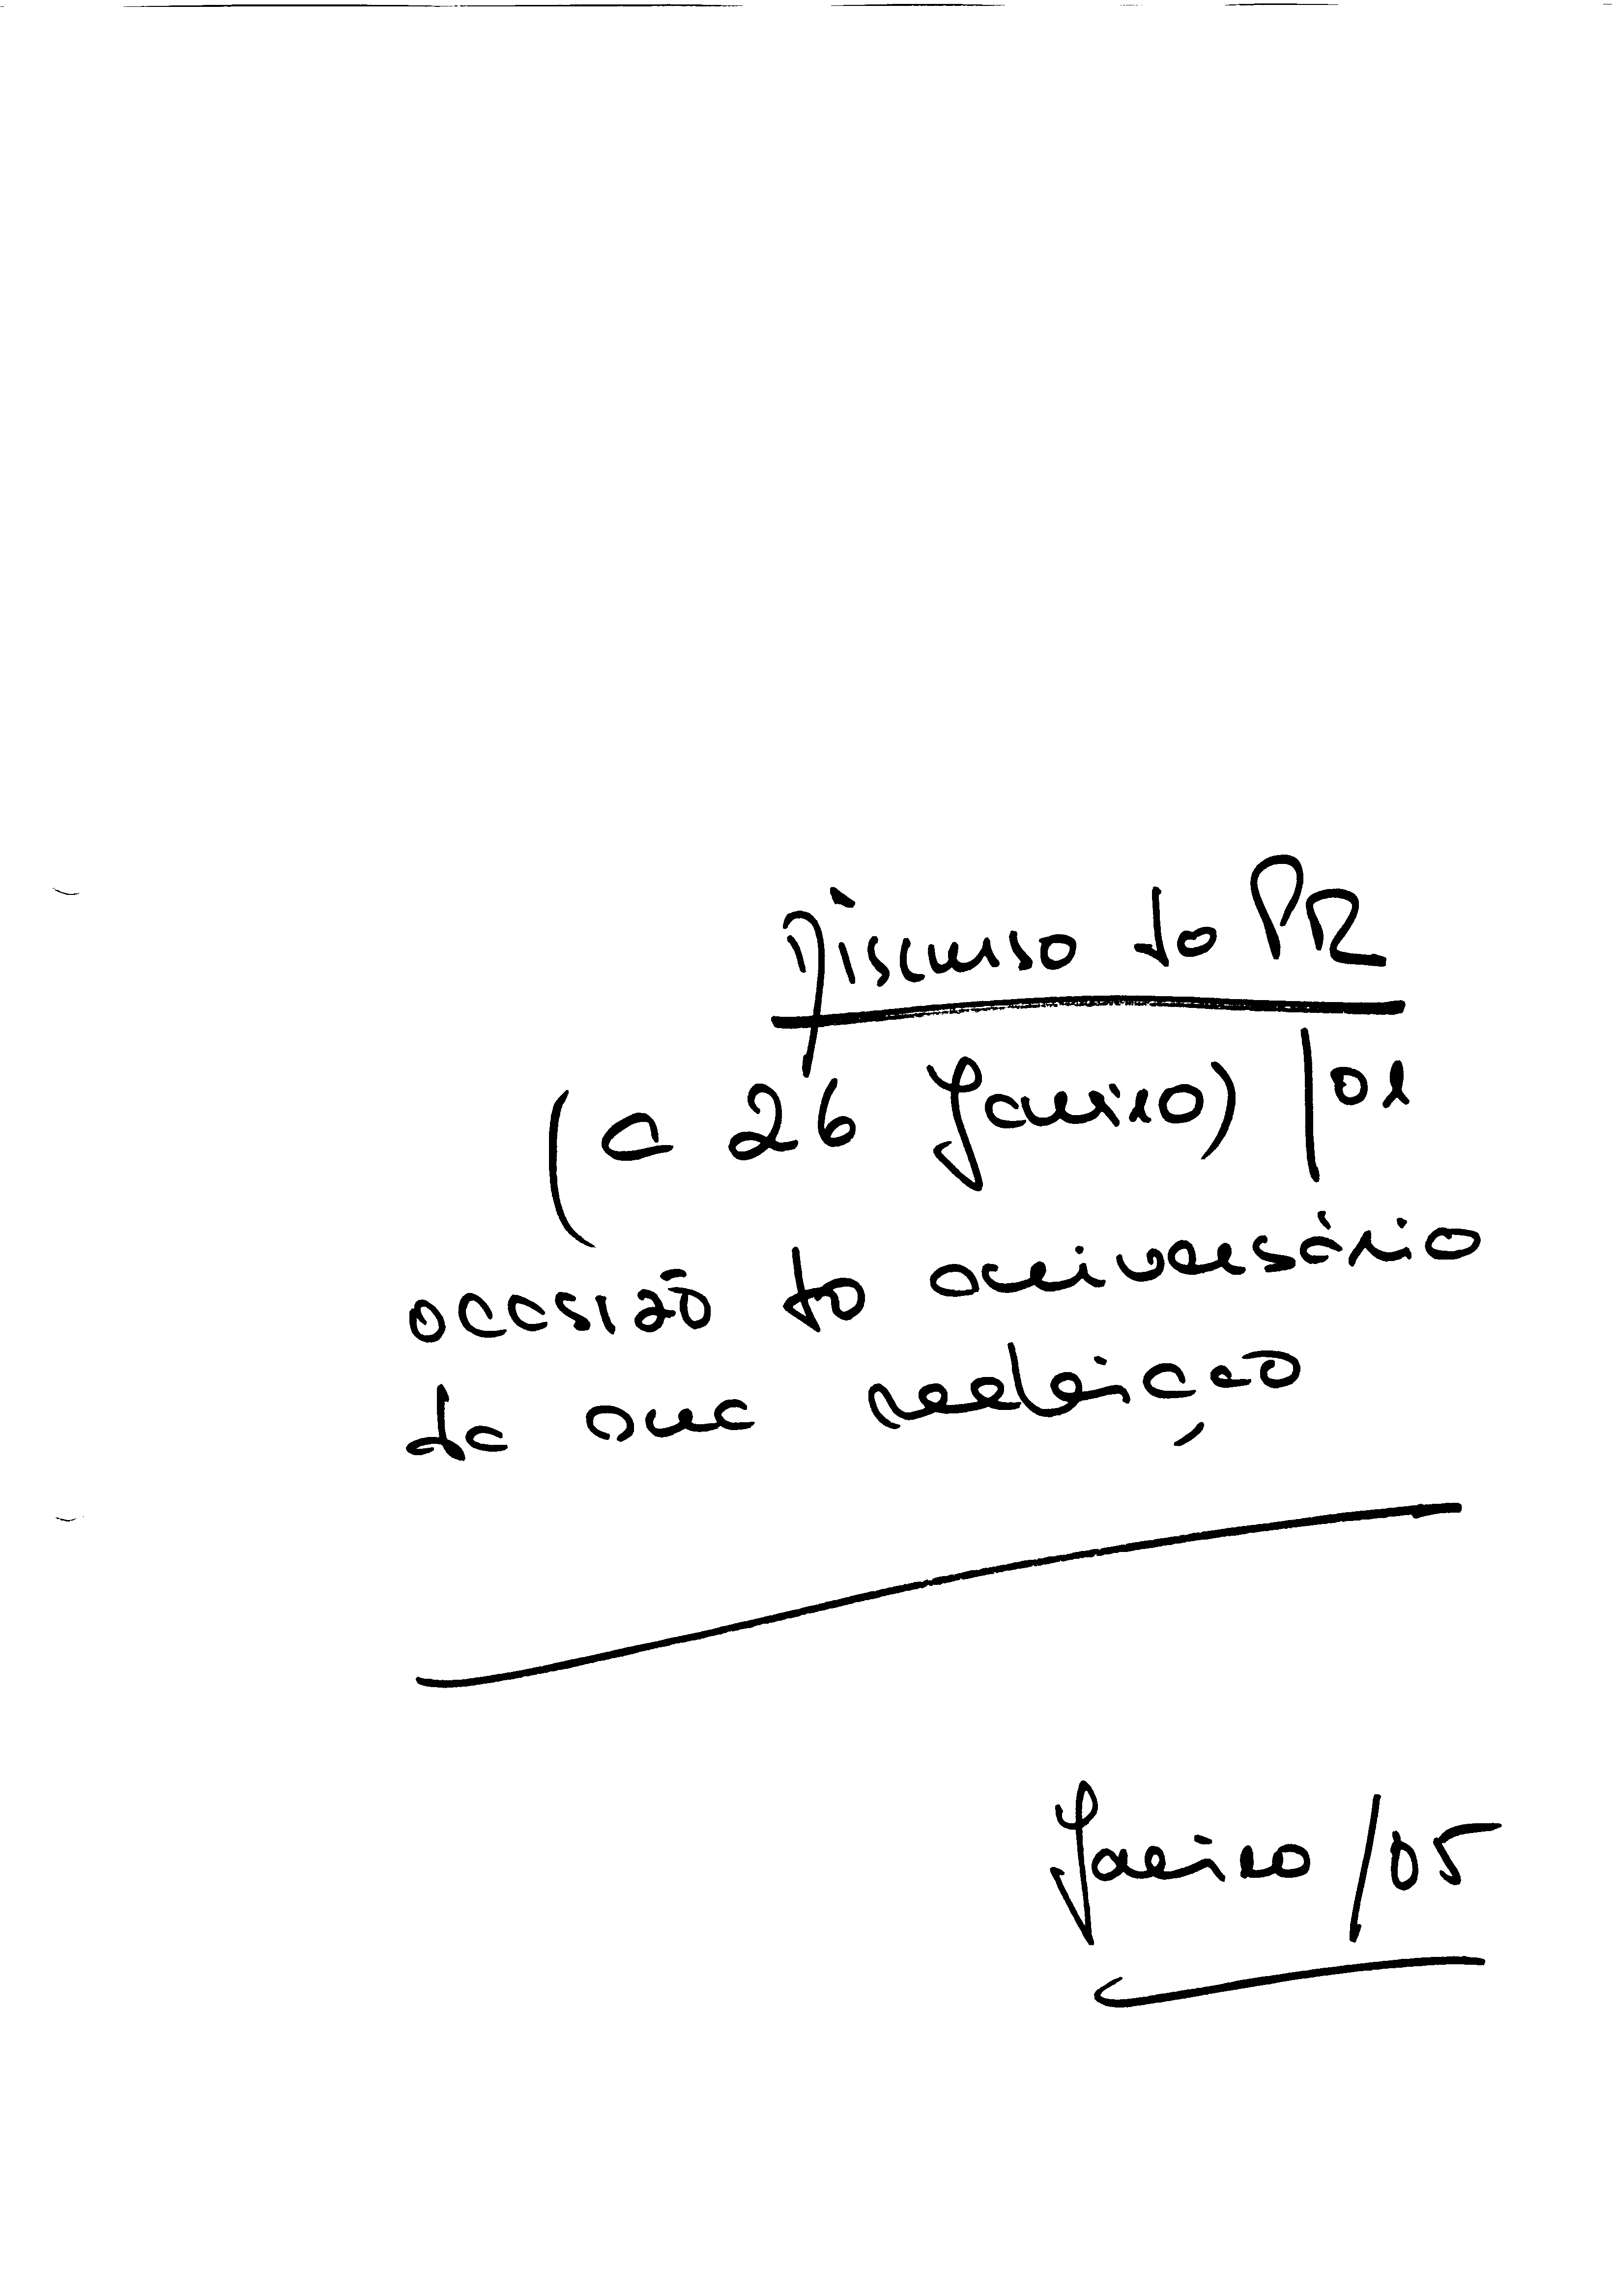 Discurso do PR
(a 26 Janeiro) /01
ocasião do aniversário
da sua reeleição
Janeiro /05